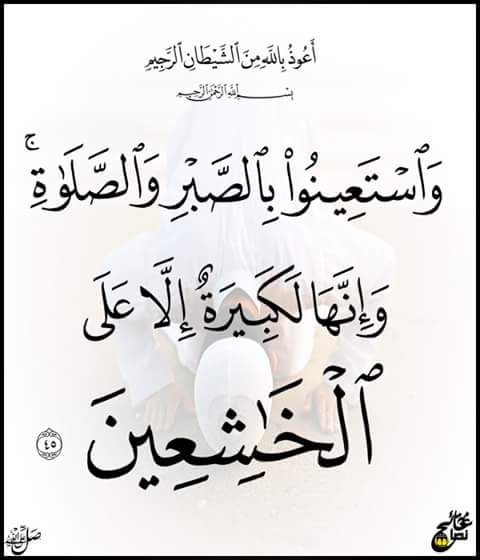 أَعُوذُ بِاللَّهِ مِنَ الشَّيْطَانِ الرَّجِيمِ
بِسْمِ اللَّهِ الرَّحْمَٰنِ الرَّحِيمِ
وَٱسْتَعِينُوا۟ بِٱلصَّبْرِ وَٱلصَّلَوٰةِ ۚ
وَإِنَّهَا لَكَبِيرَةٌ إِلَّا عَلَى
ٱلْخَـٰشِعِينَ ٤٥